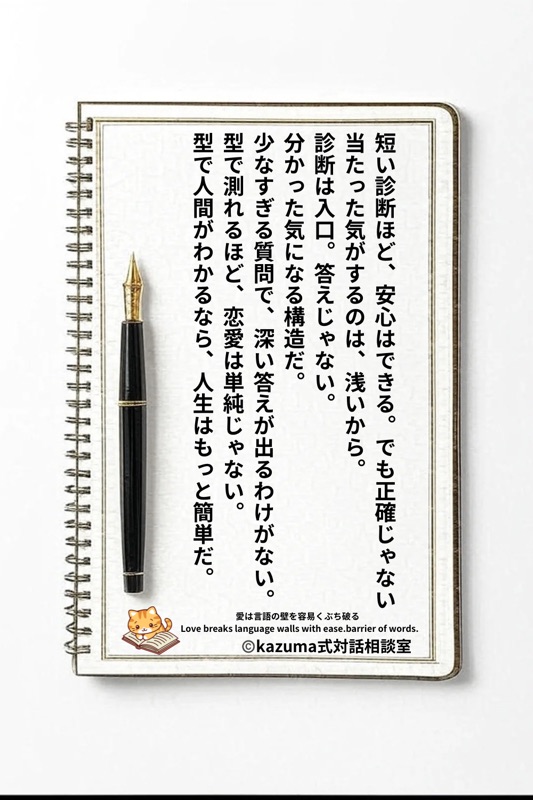 短い診断ほど、安心はできる。でも正確じゃない
当たった気がするのは、浅いから。
診断は入口。答えじゃない。
分かった気になる構造だ。
少なすぎる質問で、深い答えが出るわけがない。
型で測れるほど、恋愛は単純じゃない。
型で人間がわかるなら、人生はもっと簡単だ。
愛は言語の壁を容易くぶち破る
Love breaks language walls with ease.barrier of words.
©kazuma式対話相談室